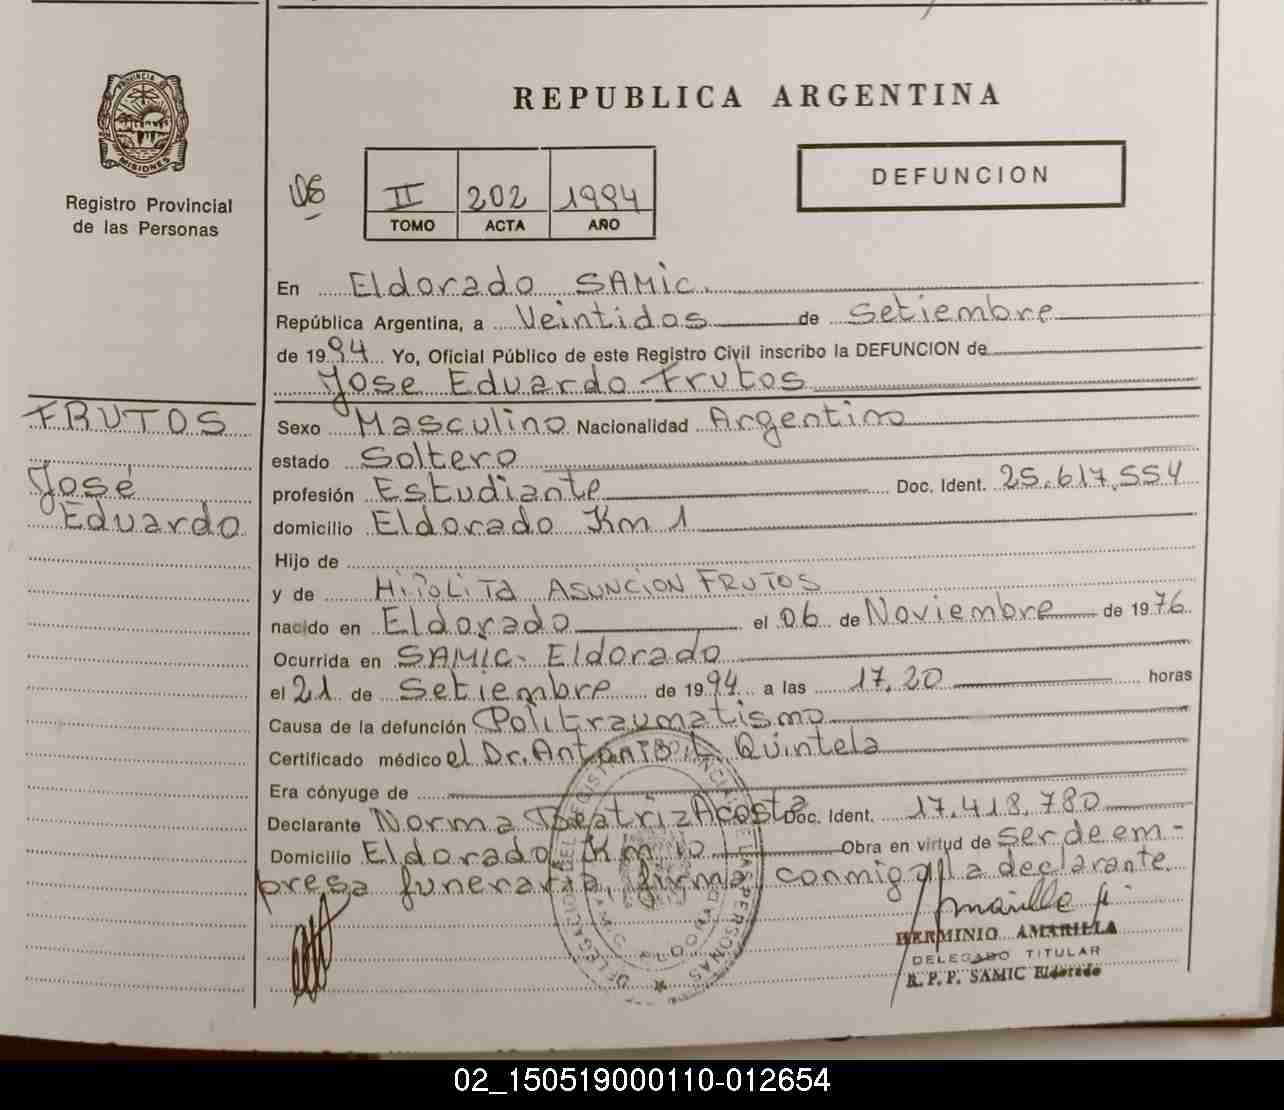 REPUBLICA ARGENTINA
PROVINCIA
MISIONES
Registro Provincial
de las Personas
II 202 1994
TOMO ACTA AÑO
DEFUNCION
En Eldorado SAMIC.
República Argentina, a Veintidos de Setiembre
de 1994 Yo, Oficial Público de este Registro Civil inscribo la DEFUNCION de
Jose Eduardo Frutos
FRUTOS
José
Eduardo
Sexo Masculino Nacionalidad Argentino
estado Soltero
profesión Estudiante Doc. Ident. 25.617.554
domicilio Eldorado Km 1
Hijo de
y de HIPOLITA ASUNCION FRUTOS
nacido en Eldorado el 06 de Noviembre de 1976
Ocurrida en SAMIC- Eldorado
el 21 de Setiembre de 1994 a las 17,20 horas
Causa de la defunción Politraumatismo
Certificado médico el Dr. Antonio L. Quintela
Era cónyuge de
Declarante Norma Beatriz Acosta Doc. Ident. 17.418.780
Domicilio Eldorado Km 10 Obra en virtud de ser de em-
presa funeraria, firma conmigo la declarante.
HERMINIO AMARILLA
DELEGADO TITULAR
R. P. P. SAMIC Eldorado
02_150519000110-012654